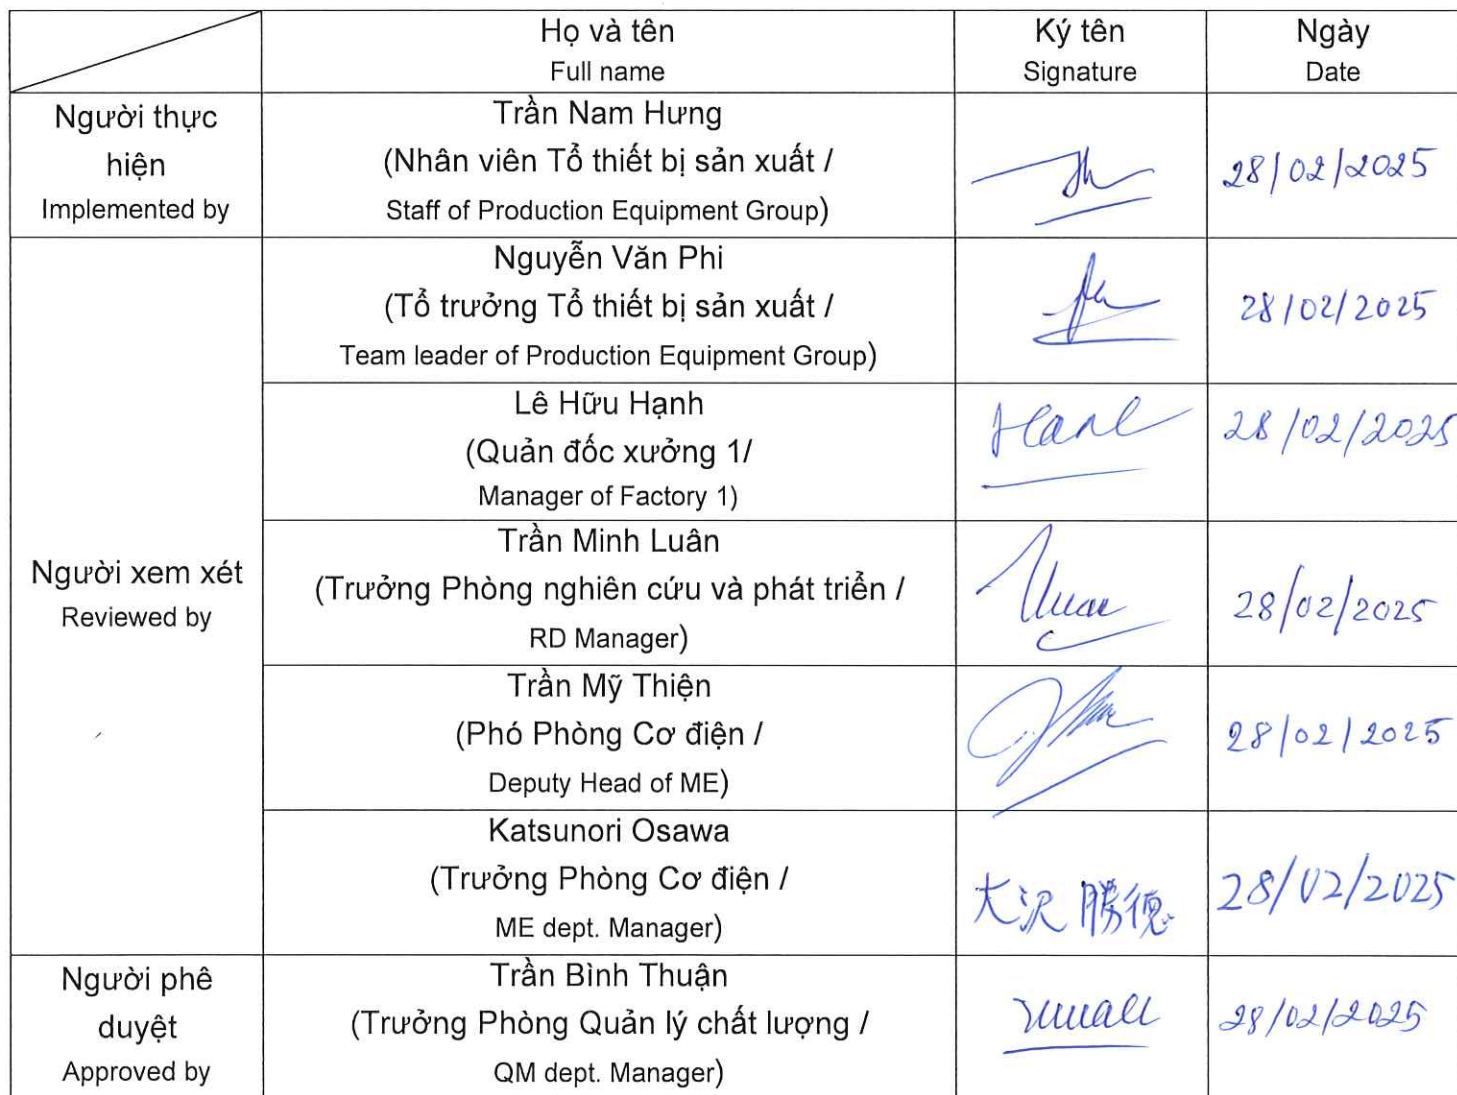 Họ và tên
Full name
Ký tên
Signature
Ngày
Date
Người thực
hiện
Implemented by
Trần Nam Hưng
(Nhân viên Tổ thiết bị sản xuất /
Staff of Production Equipment Group)
28/02/2025
Người xem xét
Reviewed by
Nguyễn Văn Phi
(Tổ trưởng Tổ thiết bị sản xuất /
Team leader of Production Equipment Group)
28/02/2025
Lê Hữu Hạnh
(Quản đốc xưởng 1/
Manager of Factory 1)
28/02/2025
Trần Minh Luân
(Trưởng Phòng nghiên cứu và phát triển /
RD Manager)
28/02/2025
Trần Mỹ Thiện
(Phó Phòng Cơ điện /
Deputy Head of ME)
28/02/2025
Katsunori Osawa
(Trưởng Phòng Cơ điện /
ME dept. Manager)
大沢 勝徳
28/02/2025
Người phê
duyệt
Approved by
Trần Bình Thuận
(Trưởng Phòng Quản lý chất lượng /
QM dept. Manager)
28/02/2025